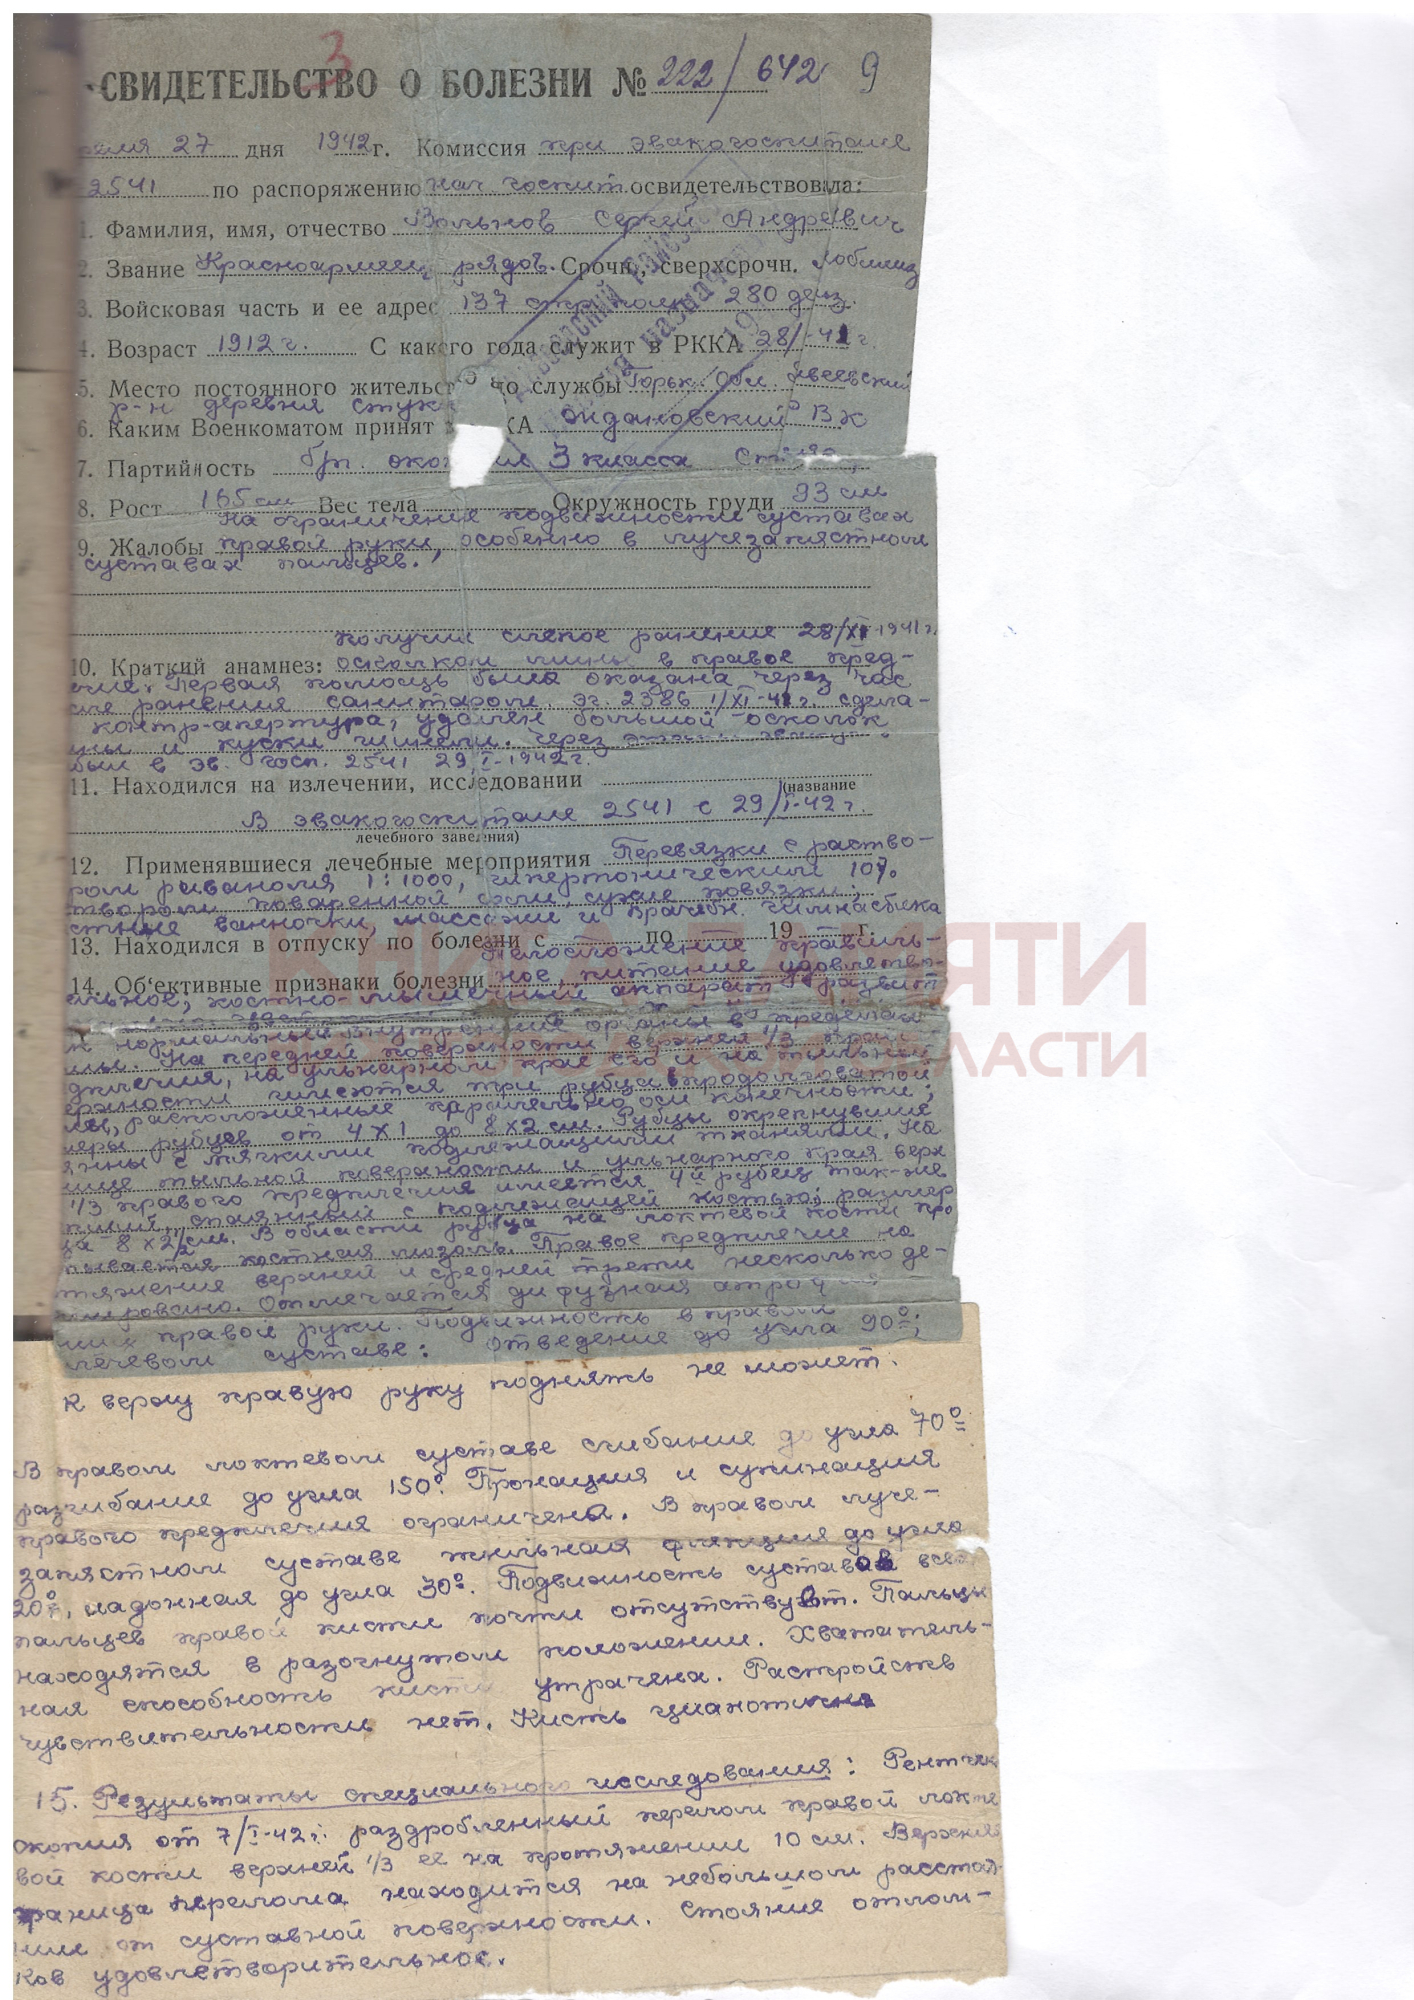 3
СВИДЕТЕЛЬСТВО О БОЛЕЗНИ № 222/642 9
27 дня 1942 г. Комиссия при эвакогоспитале
2541 по распоряжению нач. госпит. освидетельствовала:
1. Фамилия, имя, отчество Вольнов Сергей Андреевич
2. Звание Красноармеец рядов. Срочн., сверхсрочн. мобилиз
3. Войсковая часть и ее адрес 137 стр. полк 280 дивиз.
4. Возраст 1912 г. С какого года служит в РККА 28/ -41 г.
5. Место постоянного жительст до службы Горьк. Обл.
р-н деревня
6. Каким Военкоматом принят КА Ждановский РВК
7. Партийность бп. 3 класса
8. Рост 165 см Вес тела Окружность груди 93 см
На ограничение подвижности суставах
9. Жалобы правой руки, особенно в лучезапястном
суставах пальцев.
получил слепое ранение 28/XI 1941 г.
10. Краткий анамнез: осколком мины в правое пред-
Первая помощь была оказана через час
ранения санитаром. эг. 2386 1/XI-41 г. сдела-
контр-апертура, удален большой осколок
и куски шинели. Через
в эв. госп. 2541 29/I-1942 г.
11. Находился на излечении, исследовании
(название
В эвакогоспитале 2541 с 29/I-42 г.
лечебного заведения)
12. Применявшиеся лечебные мероприятия Перевязки с раство-
ром риваноля 1:1000, гипертоническим 10%
створом поваренной соли, сухие повязки,
ванночки, массажи и врачебн. гимнастика
13. Находился в отпуску по болезни с по 19 г.
Телосложение правиль-
14. Об‘ективные признаки болезни ное, питание удовлетво-
ельное, костно-мышечный аппарат развит
внутренние органы в пределах
нормальны
На передней поверхности верхней 1/3
дплечия, на ульнарном крае его и на тыльной
ерхности имеются три рубца продолговатой
расположенные параллельно оси конечности,
меры рубцов от 4х1 до 8х2 см. Рубцы окрепнувшие
янны с мягкими подлежащими тканями. На
нице тыльной поверхности и ульнарного края верх
1/3 правого предплечия имеется 4й рубец так-же
спаянный с подлежащей костью, размер
8х2 1/2 см. В области рубца на локтевой кости про
тывается костная мозоль. Правое предплечие на
тяжение верхней и средней трети несколько де-
мировано. Отмечается дифузная атрофия
правой руки. Подвижность в правом
плечевом суставе: отведение до угла 90°;
к верху правую руку поднять не может.
В правом локтевом суставе сгибание до угла 70°
разгибание до угла 150°. Пронация и супинация
правого предплечия ограничена. В правом луче-
запястном суставе тыльная флекция до угла
20°, ладонная до угла 30°. Подвижность суставов всех
пальцев правой кисти почти отсутствует. Пальцы
находятся в разогнутом положении. Хвататель-
ная способность кисти утрачена. Растройств
чувствительности нет. Кисть цианотична
15. Результаты специального исследования: Рентген
скопия от 7/I-42 г. раздробленный перелом правой локте
вой кости верхней 1/3 ее на протяжении 10 см. Верхняя
граница перелома находится на небольшом расстоя-
нии от суставной поверхности. Стояние отлом-
ков удовлетворительное.
КНИГА ПАМЯТИ
ОБЛАСТИ